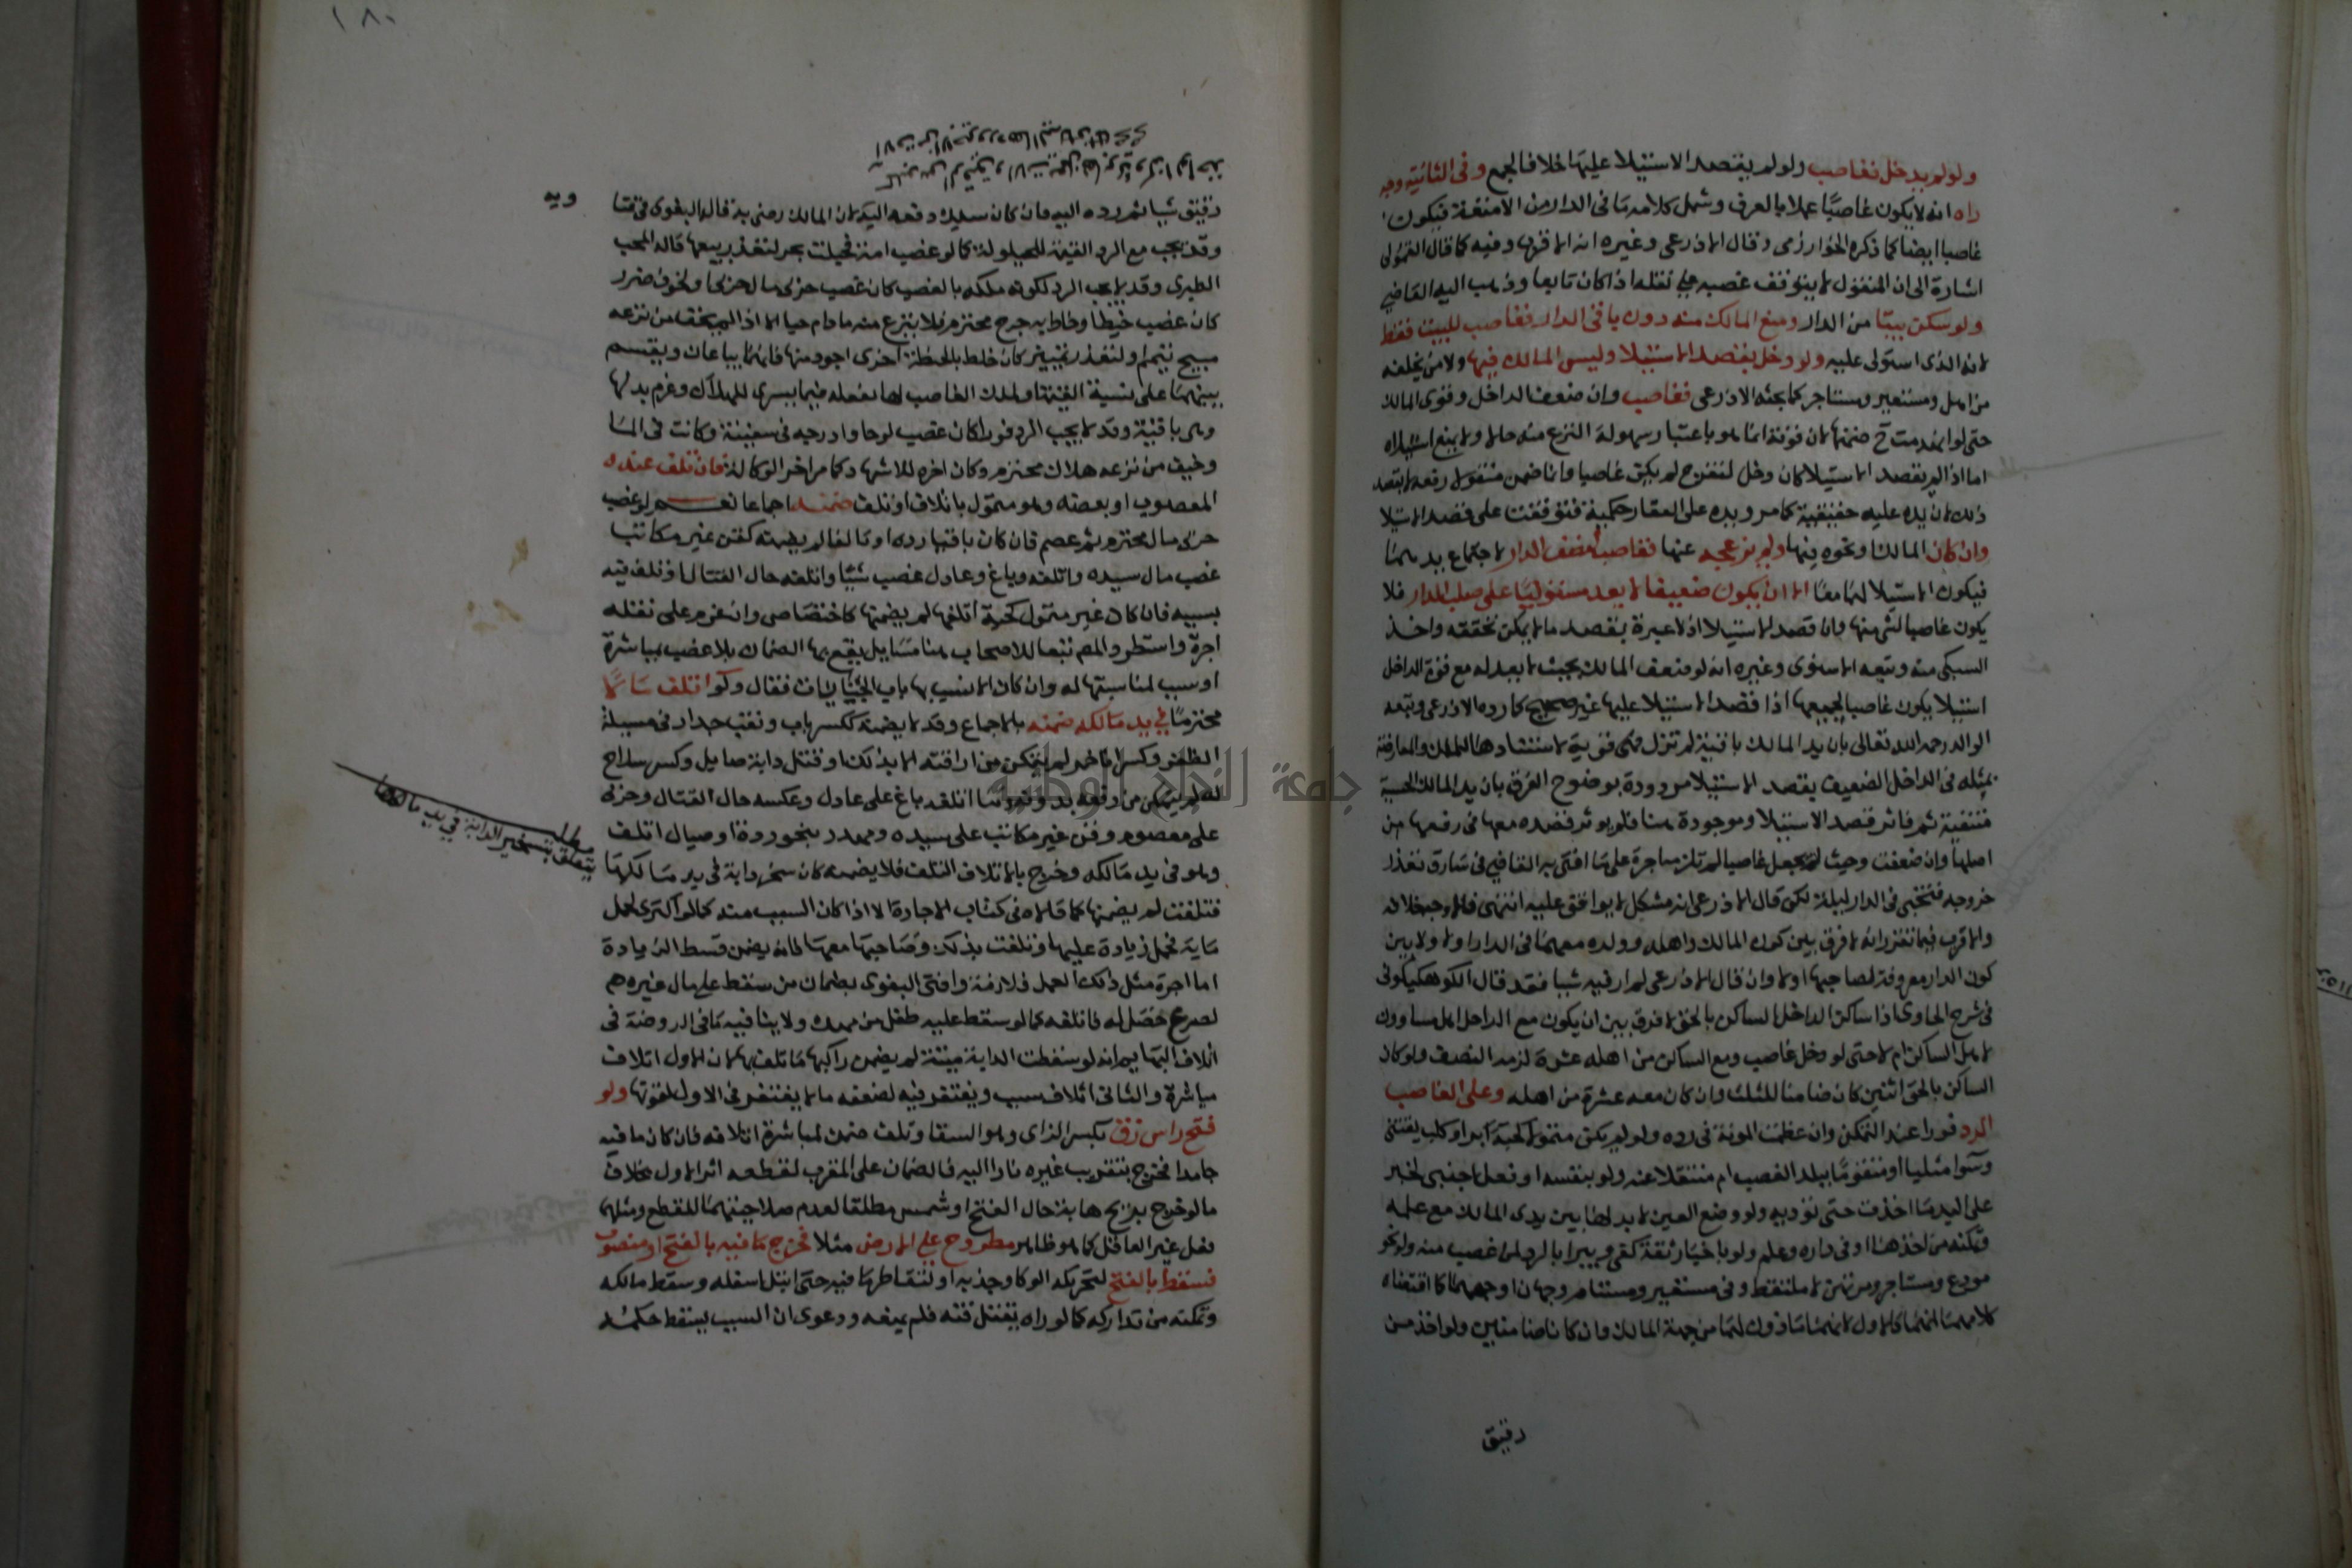 ولو لم يدخل فغاصب ولو لم يقصد الاستيلا عليها خلافا لجمع وفي الثانية وجه
راه انه لا يكون غاصبا عملا بالعرف وشمل كلامه ما فى الدار من الامتعة فيكون
غاصبا ايضا كما ذكره الخوارزمى وقال الاذرعى وغيره انه الاقرب وفيه كما قال القمولى
اشارة الى ان المنقول لا يتوقف غصبه على نقله اذا كان تابعا وذهب اليه القاضي
ولو سكن بيتا من الدار ومنع المالك منه دون باقى الدار فغاصب للبيت فقط
لانه الذى استولى عليه ولو دخل بقصد الاستيلا وليس المالك فيها ولا من يخلفه
من اهل ومستعير ومستاجر كما بحثه الاذرعى فغاصب وان ضعف الداخل وقوى المالك
حتى لو انهدمت ح ضمنها لان قوته انما هو باعتبار سهولة النزع منه حالا ولا يمنع استيلاه
اما اذا لم يقصد الاستيلا كان دخل لتفرج لم يكن غاصبا وانما ضمن منقولا رفعه لا بقصد
ذلك لان يده عليه حقيقية كامر ويده على العقار حكمية فتوقفت على قصد الاستيلا
وان كان المالك ونحوه فيها ولم يزعجه عنها فغاصب لنصف الدار لاجتماع يدهما
فيكون الاستيلا لهما معا الا ان يكون ضعيفا لا يعد مستوليا على صاحب الدار فلا
يكون غاصبا لشى منها وان قصد الاستيلا اذ لا عبرة بقصد ما لا يمكن تحققه واخذ
السبكى منه وتبعه الاسنوى وغيره انه لو ضعف المالك بحيث لا يعد له مع قوة الداخل
استيلا يكون غاصبا لجميعها اذا قصد الاستيلا عليها غير صحيح كما رده الاذرعى وتبعه
الوالد رحمه الله تعالى بان يد المالك باقية لم تزل فهى قوية لاستنادها للملك والمعارضة
بمثله فى الداخل الضعيف بقصد الاستيلا مردودة بوضوح الفرق بان يد المالك الحسية
منتفية ثم فاثر قصد الاستيلا وموجودة هنا فلم يوثر قصده معها فى رفعها من
اصلها وان ضعفت وحيث لم يجعل غاصبا لم تلزمه اجرة على ما افتى به القاضي فى سارق تعذر
خروجه فتخبى فى الدار ليلة لكن قال الاذرعى انه مشكل لا يوافق عليه انتهى فالاوجه خلافه
والاقرب فيما تقرر انه لا فرق بين كون المالك واهله وولده معهما فى الدار اولا ولا بين
كون الدار معروفة لصاحبها اولا وان قال الاذرعى لم ار فيه شيا فقد قال الكوهكيلونى
فى شرح الحاوى اذا ساكن الداخل الساكن بالحق لا فرق بين ان يكون مع الداخل اهل مساوون
لاهل الساكن ام لا حتى لو دخل غاصب ومع الساكن من اهله عشرة لزمه النصف ولو كان
الساكن بالحق اثنين كان ضامنا للثلث وان كان معه عشرة من اهله وعلى الغاصب
الرد فورا عند التمكن وان عظمت المونة فى رده ولو لم يكن متمولا كحبة بر او كلب يقتنى
وسوا مثليا او متقوما ببلد الغصب ام منتقلا عنه ولو بنفسه او فعل اجنبى لخبر
على اليد ما اخذت حتى توديه ولو وضع العين لا بدلها بين يدى المالك مع علمه
وتمكنه من اخذها او فى داره وعلم ولو باخبار ثقة كفى ويبرا بالرد لمن غصب منه ولو نحو
مودع ومستاجر ومرتهن لا ملتقط وفى مستعير ومستام وجهان اوجههما كما اقتضاه
كلامهما انهما كالاول لانهما ماذون لهما من جهة المالك وان كانا ضامنين ولو اخذ من
رقيق
رقيق شيا ثم رده اليه فان كان سيده دفعه اليه لان المالك رضى به قاله البغوى فى فتا
ويه
وقد يجب مع الرد القيمة للحيلولة كما لو غصب امة فحملت بحر لتعذر بيعها قاله المحب
الطبرى وقد لا يجب الرد لكونه ملكه بالغصب كان غصب حربى مال حربى او لخوف ضرر
كان غصب خيطا وخاط به جرح محترم فلا ينزع منه ما دام حيا الا اذا لم يخف من نزعه
مبيح تيمم او لتعذر تمييز كان خلط بالحنطة اخرى اجود منها فانهما يباعان ويقسم
بينهما على نسبة القيمة او لملك الغاصب لها بفعله فيما يسرى للهلاك وغرم بدلها
وهى باقية وقد لا يجب الرد فورا كان غصب لوحا وادرجه فى سفينة وكانت فى الما
وخيف من نزعه هلاك محترم وكان اخره للاشهاد كما مر اخر الوكالة فان تلف عنده
المغصوب او بعضه وهو متمول باتلاف او تلف ضمنه اجماعا نعم لو غصب
حربى مال محترم ثم عصم فان كان باقيا رده او تالفا لم يضمنه كقن غير مكاتب
غصب مال سيده واتلفه وباغ وعادل غصب شيا واتلفه حال القتال او تلف فيه
بسببه فان كان غير متمول كحبة اتلفها لم يضمنها كاختصاص وان غرم على نقله
اجرة واستطرد المص تبعا للاصحاب هنا مسايل يقع بها الضمان بلا غصب بمباشرة
او سبب لمناسبتها له وان كان الانسب بها باب الجنايات فقال ولو اتلف مالا
محترما في يد مالكه ضمنه بالاجماع وقد لا يضمنه ككسر باب ونقب جدار فى مسيلة
الظفر وكسر انا خمر لم يتمكن من اراقته الا بذلك او قتل دابة صايل وكسر سلاح
على معصوم وقن غير مكاتب على سيده ومهدر بنحو ردة او صيال اتلف
وهو فى يد مالكه وخرج بالاتلاف التلف فلا يضمنه كان سخر دابة فى يد مالكها
فتلفت لم يضمنها كما قالاه فى كتاب الاجارة الا اذا كان السبب منه كما لو اكترى لحمل
ماية فحمل زيادة عليها وتلفت بذلك وصاحبها معها فانه يضمن قسط الزيادة
اما اجرة مثل ذلك العمل فلازمة وافتى البغوى بضمان من سقط على مال غيره
لصرع حصل له فاتلفه كما لو سقط عليه طفل من مهده ولا ينافيه ما فى الروضة فى
اتلاف البهايم انه لو سقطت الدابة ميتة لم يضمن راكبها ما تلف بها لان الاول اتلاف
مباشرة والثانى اتلاف سبب ويغتفر فيه لضعفه ما لا يغتفر فى الاول لقوتها ولو
فتح راس زق بكسر الزاى وهو السقا وتلف ضمن لمباشرة اتلافه فان كان ما فيه
جامدا فخرج بتقريب غيره نارا اليه فالضمان على المقرب لقطعه اثر الاول بخلاف
ما لو خرج بريح هابة حال الفتح او شمس مطلقا لعدم صلاحيتهما للقطع ومثلهما
فعل غير العاقل كما هو ظاهر مطروح على الارض مثلا فخرج ما فيه بالفتح او منصوب
فسقط بالفتح لتحريكه الوكا وجذبه او لتقاطر ما فيه حتى ابتل اسفله وسقط مالكه
وتمكنه من تداركه كما لو راه يقتل قنه فلم يمنعه ودعوى ان السبب يسقط حكمه
مطلب
يتعلق بتسخير الدابة في يد مالكها
١٨٠
جامعة النجاح الوطنية